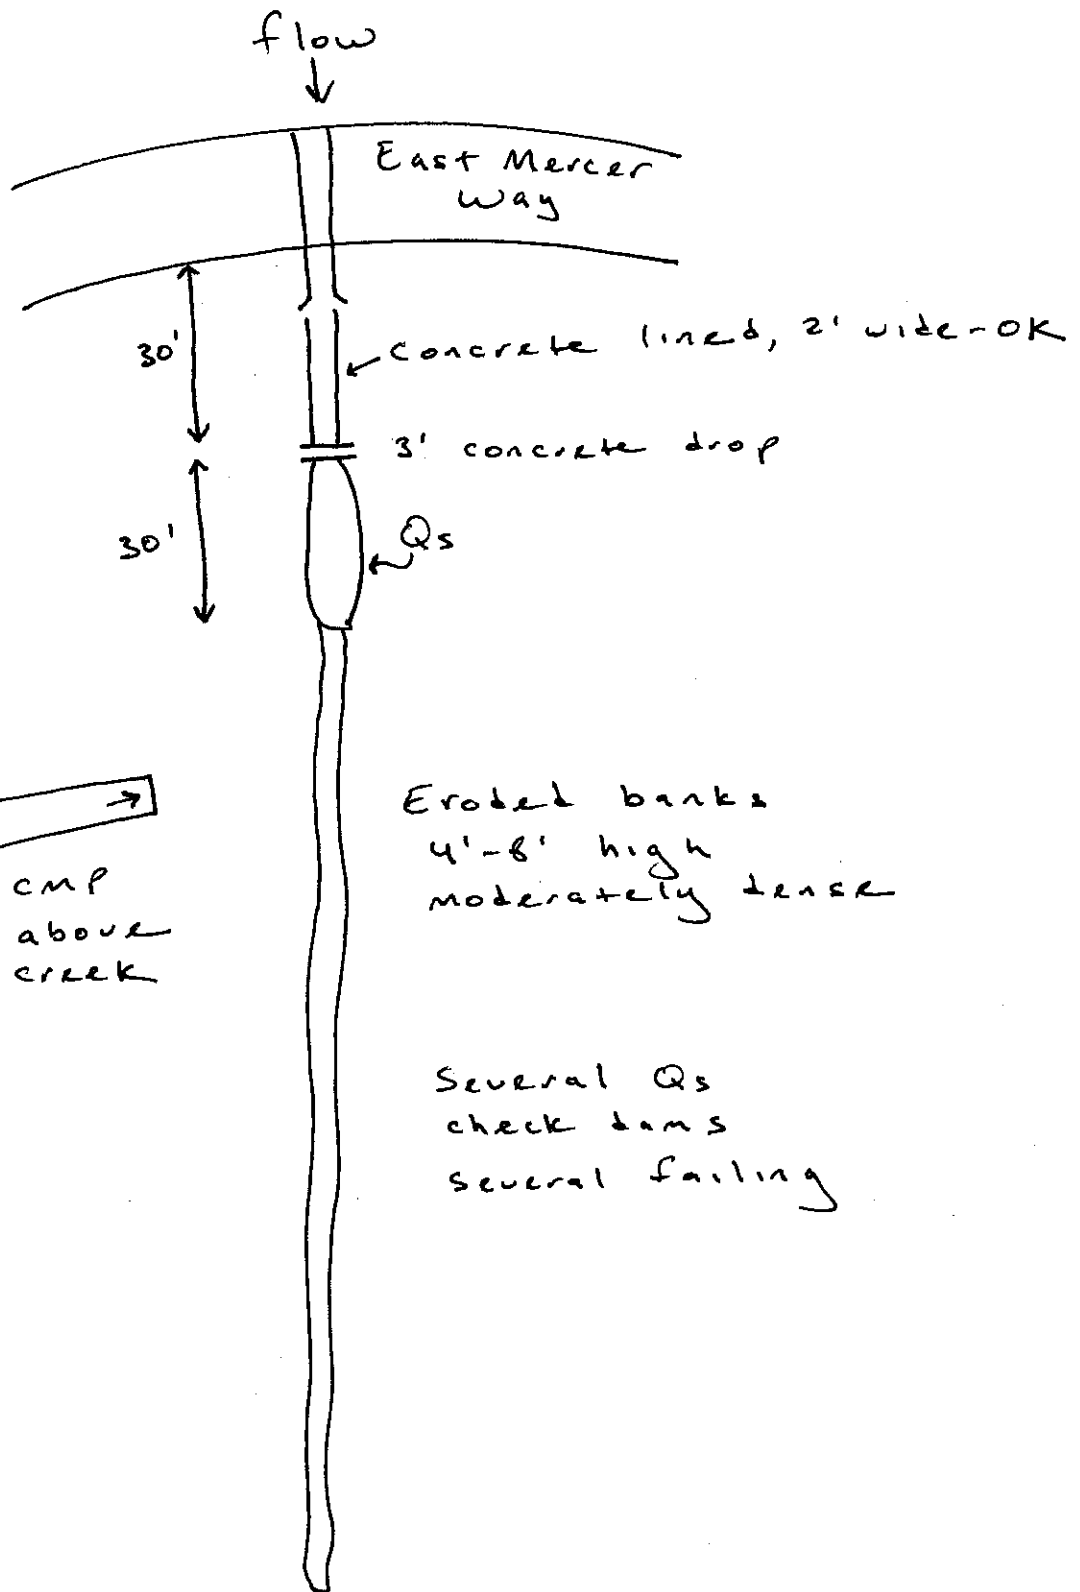 flow
East Mercer
Way
30'
concrete lined, 2' wide-OK
3' concrete drop
30'
Qs
Eroded banks
4'-8' high
moderately dense
cmp
above
creek
Several Qs
check dams
several failing